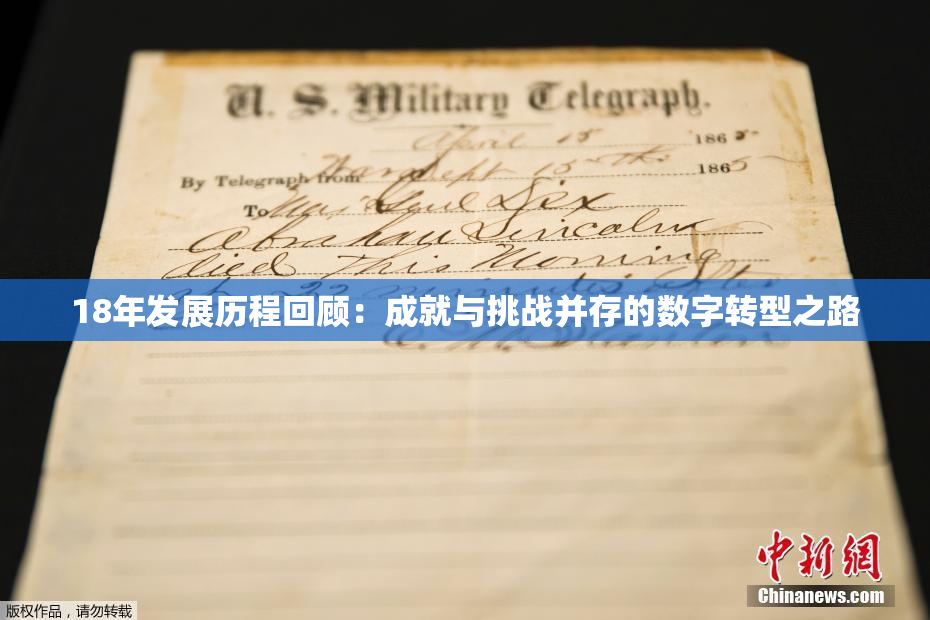 U. S. Military Telegraph.
April 15 1865
By Telegraph from War Dept 15th 1865
To Maj Genl Dix
Abraham Lincoln
died This Morning
at 22 minutes after
18年发展历程回顾：成就与挑战并存的数字转型之路
E. M. Stanton
中新网
Chinanews.com
版权作品，请勿转载